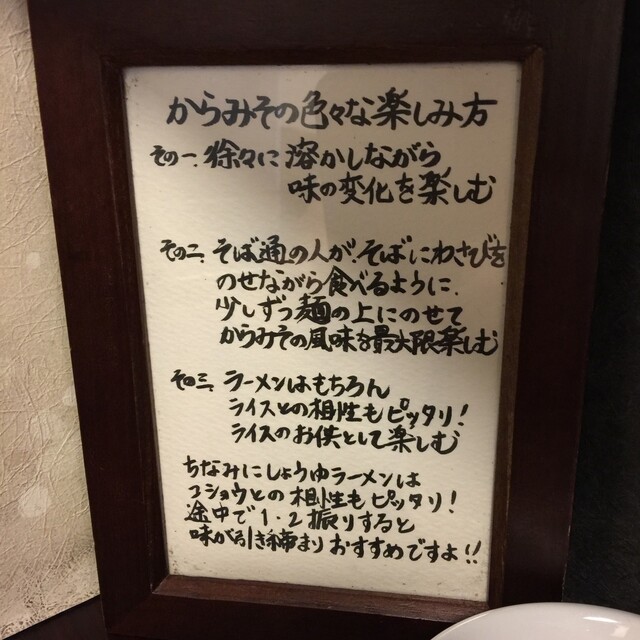 からみその色々な楽しみ方
その一、徐々に溶かしながら
味の変化を楽しむ
その二、そば通の人が、そばにわさびを
のせながら食べるように、
少しずつ麺の上にのせて
からみその風味を最大限楽しむ
その三、ラーメンはもちろん
ライスとの相性もピッタリ!
ライスのお供として楽しむ
ちなみにしょうゆラーメンは
コショウとの相性もピッタリ!
途中で1・2振りすると
味が引き締まりおすすめですよ!!